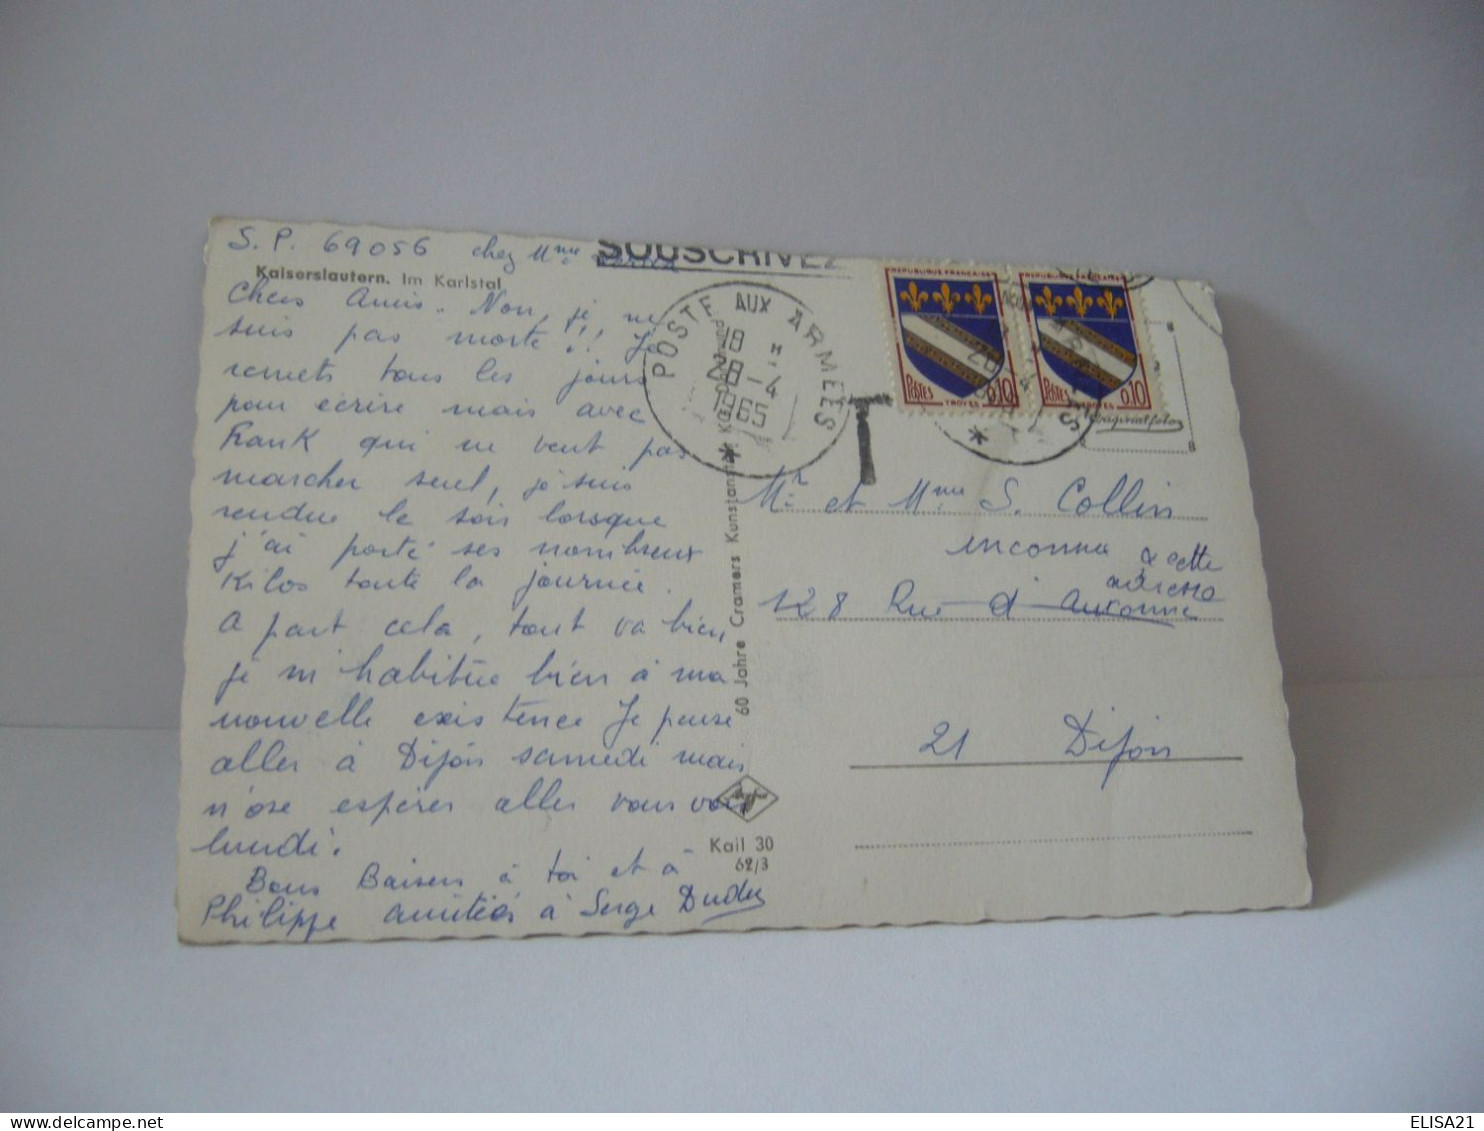 S. P. 69056 chez Mme
SOUSCRIVEZ
Kaiserslautern. Im Karlstal
Chers Amis. Non, je ne
suis pas morte!!! Je
remets tous les jours
pour écrire mais avec
Frank qui ne veut pas
marcher seul, je suis
rendue le soir lorsque
j'ai porté ses nombreux
Kilos toute la journée.
A part cela, tout va bien,
je m'habitue bien à ma
nouvelle existence Je pense
aller à Dijon samedi mais
n'ose espérer aller vous voir
lundi.
Bons Baisers à toi et à
Philippe amitiés à Serge Dudu
POSTE AUX ARMEES
18 H
28-4
1965
T
REPUBLIQUE FRANÇAISE
POSTES 0,10
TROYES
REPUBLIQUE FRANÇAISE
POSTES 0,10
TROYES
60 Jahre Cramers Kunstanstalt KG, Dortmund
Kail 30
62/3
Mr et Mme S. Collin
inconnu à cette
adresse
128 Rue d'Auxonne
21 Dijon
ELISA21